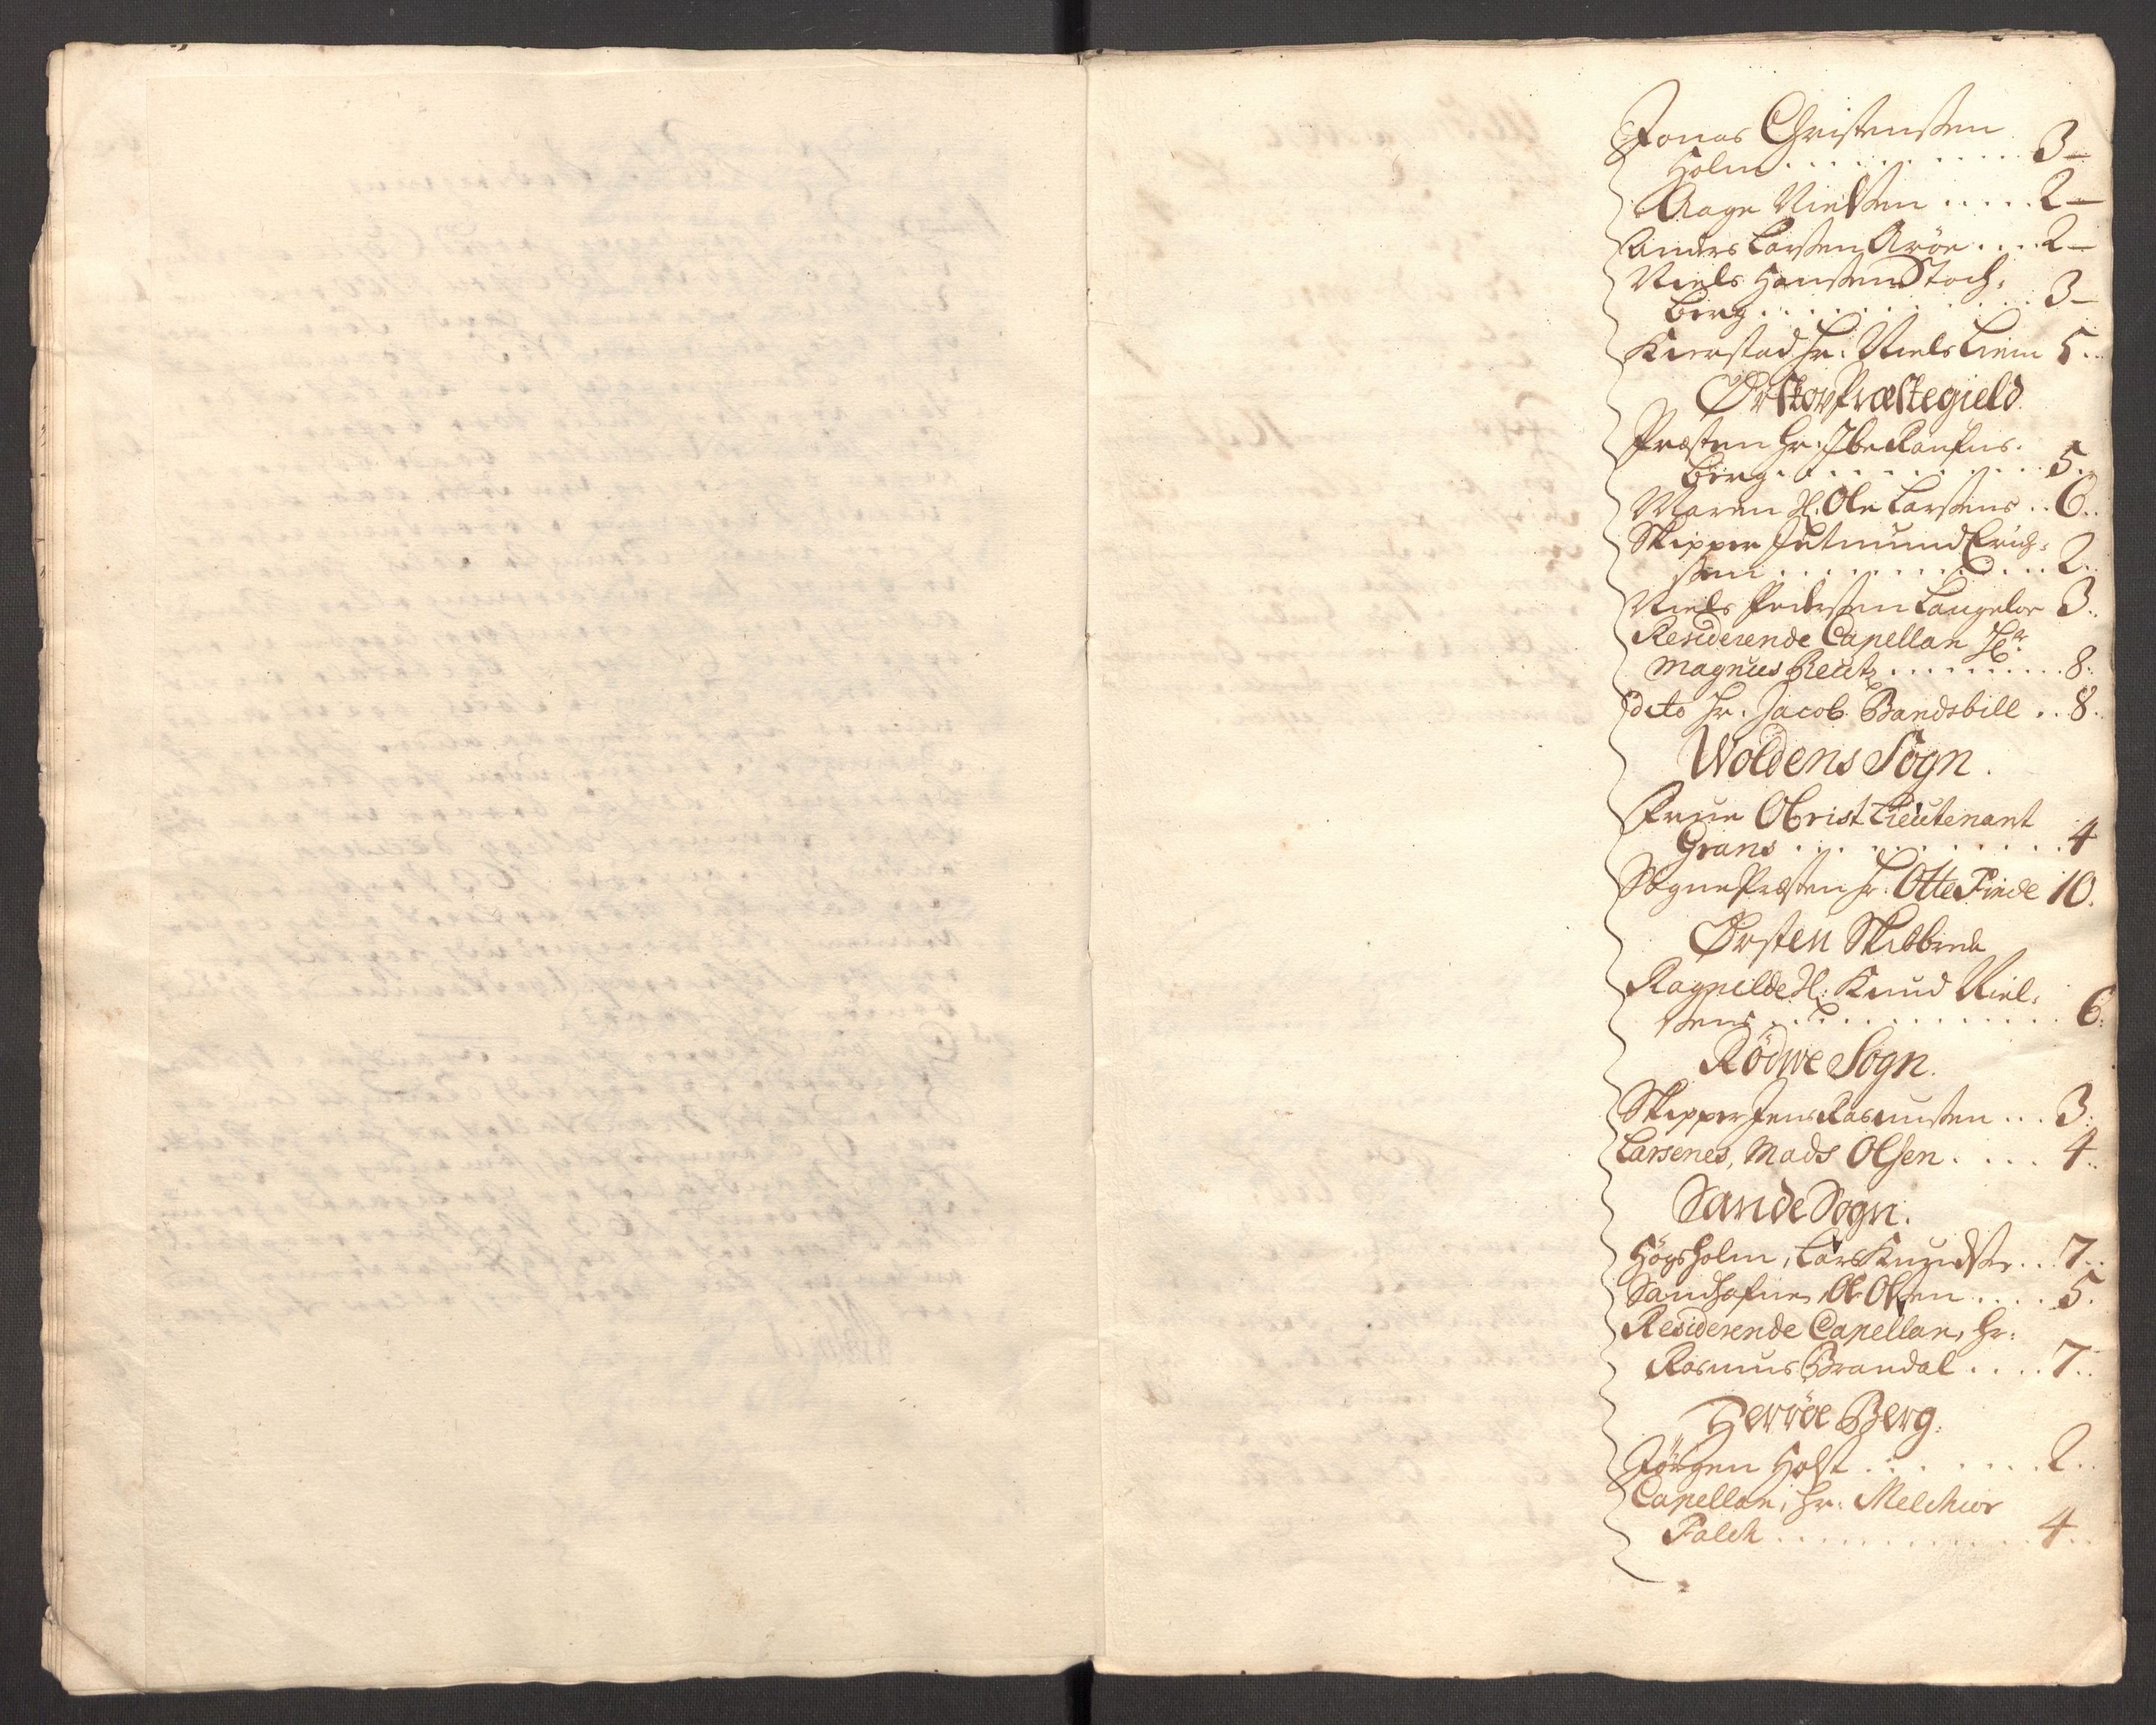 Jonas Christensen
Holm . . . . . . . . . . . 3 –
Aage Nielsen . . . . . 2 –
Anders Larsen Aröe . . . . 2 –
Niels Hansen Stoch:
berg . . . . . . . . . . . 3 –
Kierstad Hr: Niels Liem 5 . .
Ørskov Præstegield.
Præsten Hr: Ibe Ranfus.
berg . . . . . . . . . . . 5 .
Maren Sl: Ole Larsens . . 6 . .
Skipper Jetmund Erich:
sen . . . . . . . . . . . 2 . .
Niels Pedersen Langeloe 3 . .
Residerende Capellan Hr.
Magnus Reutz . . . . . . . . . 8 :
dito Hr. Jacob Bandsbill . . 8 . .
Woldens Sogn.
Frue Obrist Lieutenant
Grans . . . . . . . . . . . 4
Sogne Præsten Hr. Otte Finde 10.
Ørsten Skibbrede
Ragnilde Sl: Knud Niel:
sens . . . . . . . . . . . 6 :
Rödwe Sogn.
Skipper Jens Rasmussen . . . 3 :
Larsenes, Mads Olsen . . . . 4 . .
Sande Sogn.
Högsholm, Lars Knudsen . . 7 . .
Sandhafne, Ole Olsen . . . . 5 .
Residerende Capellan, Hr:
Rasmus Brandal . . . . 7 . .
Herröe Berg.
Jörgen Holst . . . . . . . 2 . .
Capellan, Hr: Melchior
Falch . . . . . . . . . . . 4 . .